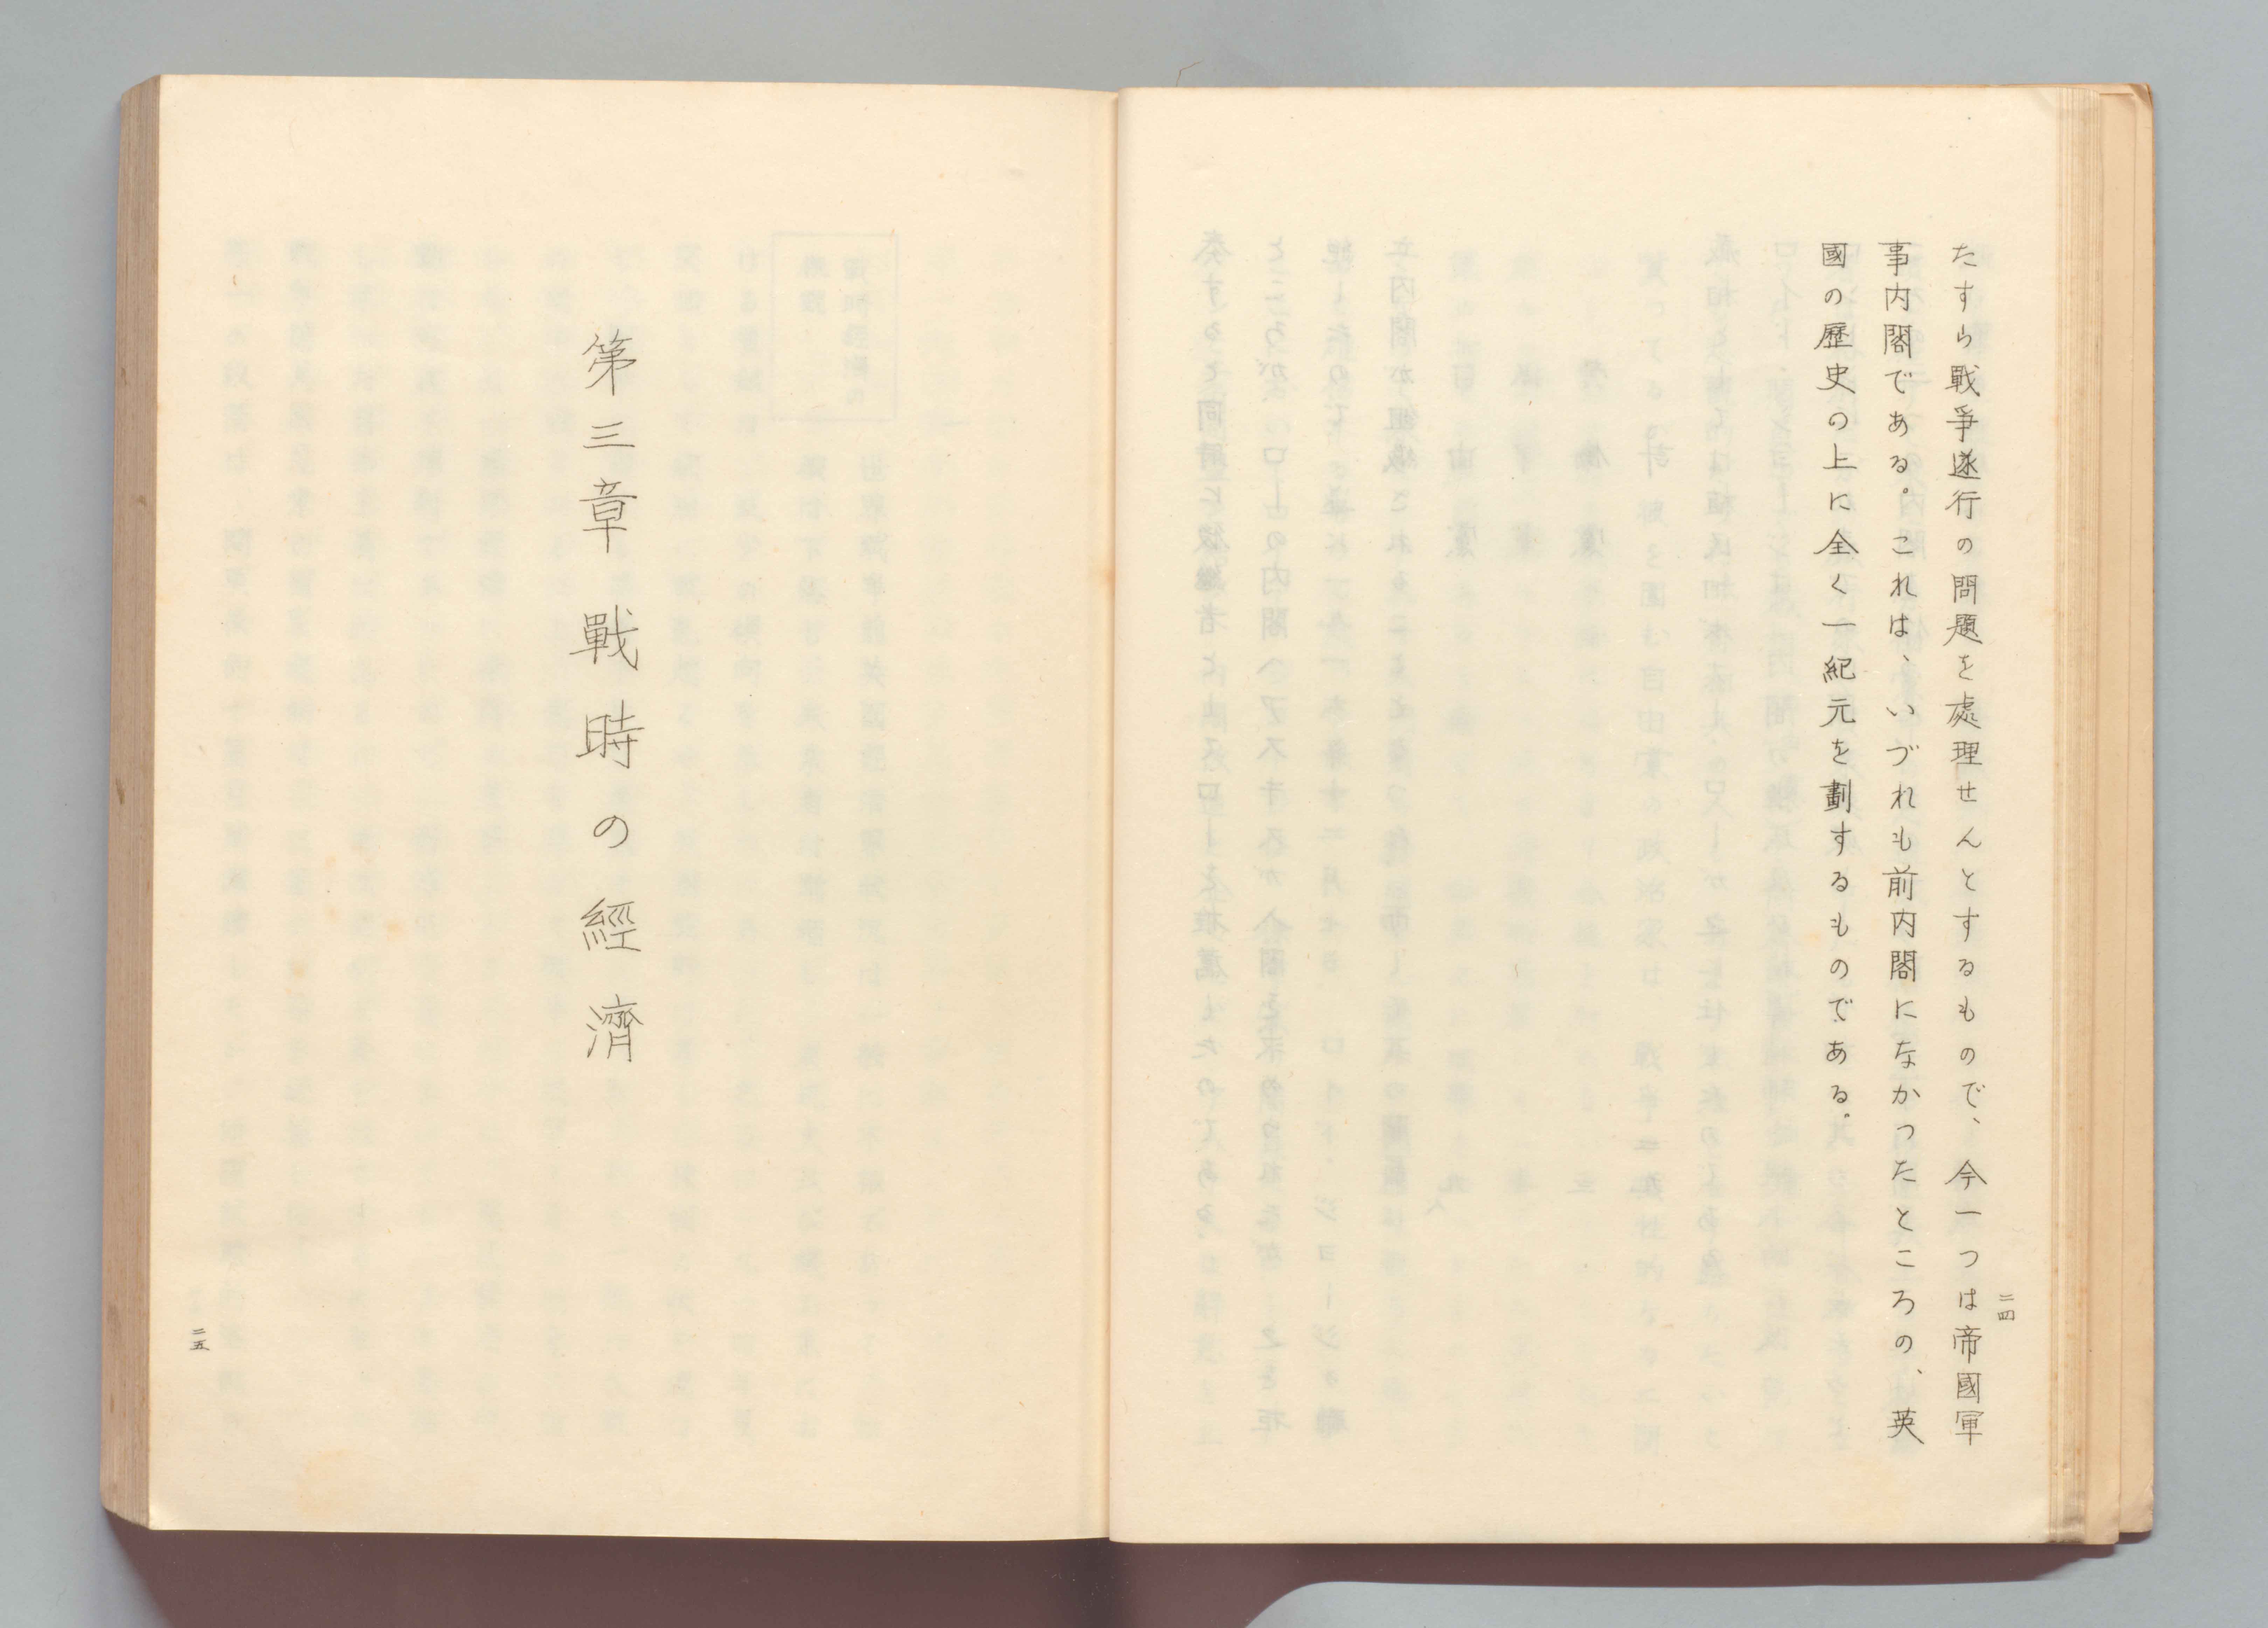 たすら戰爭遂行の問題を處理せんとするもので、今一つは帝國軍
事内閣である。これは、いづれも前内閣になかったところの、英
國の歴史の上に全く一紀元を劃するものである。
二四
第三章 戰時の經濟
二五